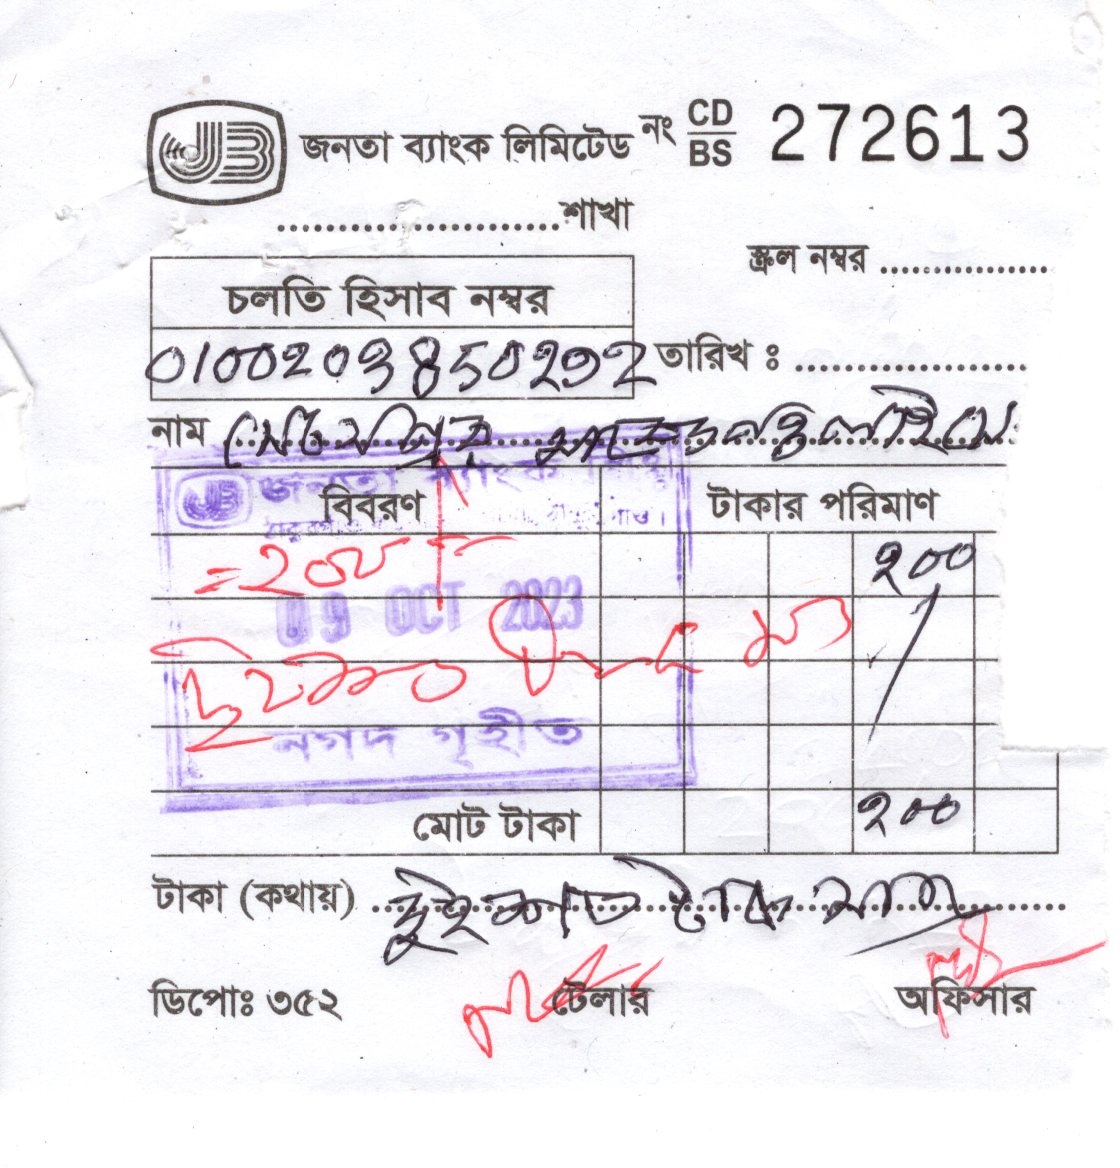 JB জনতা ব্যাংক লিমিটেড নং CD/BS 272613
.......................শাখা
স্ক্রল নম্বর ................
চলতি হিসাব নম্বর
0100209850292 তারিখ ঃ ......................
নাম
জনতা ব্যাংক
বিবরণ টাকার পরিমাণ
=২০০ ২০০
09 OCT 2023
দুইশত টাকা মাত্র
নগদ গৃহীত
মোট টাকা ২০০
টাকা (কথায়) দুইশত টাকা মাত্র
ডিপোঃ ৩৫২ টেলার অফিসার